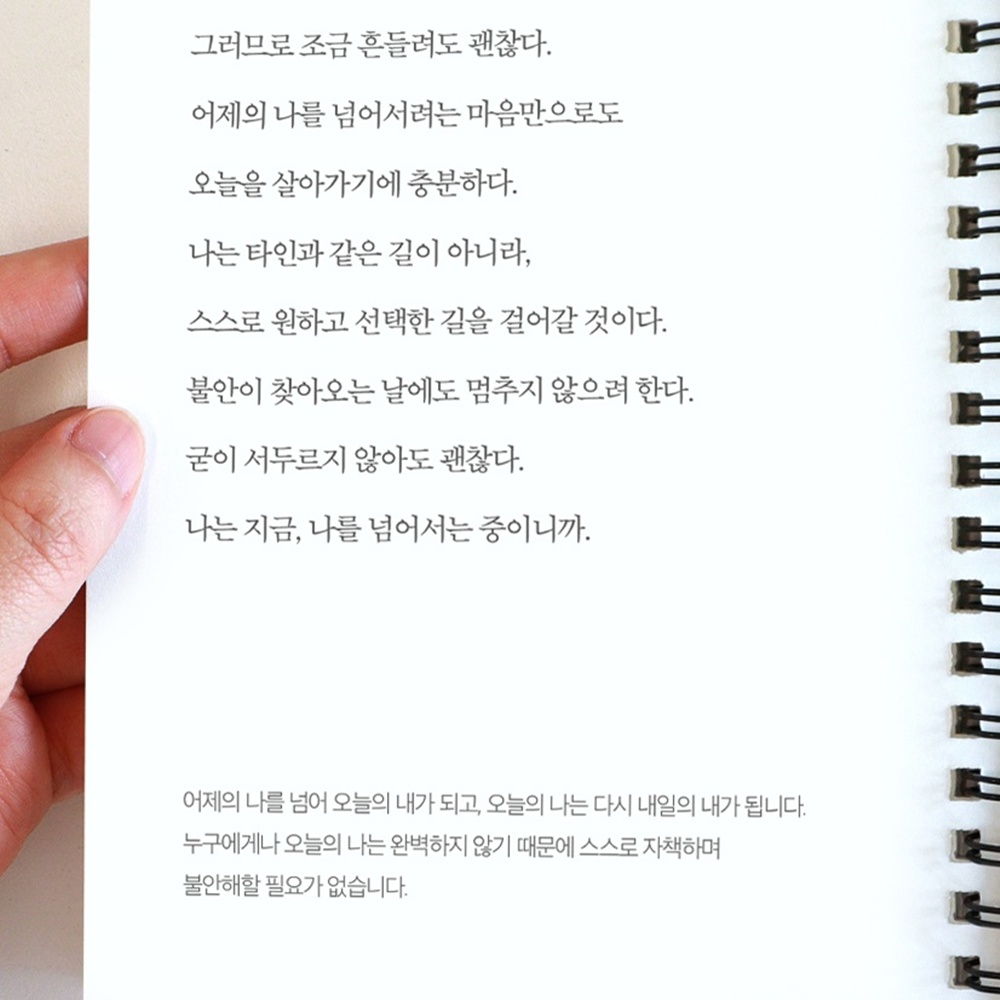 그러므로 조금 흔들려도 괜찮다.
어제의 나를 넘어서려는 마음만으로도
오늘을 살아가기에 충분하다.
나는 타인과 같은 길이 아니라,
스스로 원하고 선택한 길을 걸어갈 것이다.
불안이 찾아오는 날에도 멈추지 않으려 한다.
굳이 서두르지 않아도 괜찮다.
나는 지금, 나를 넘어서는 중이니까.
어제의 나를 넘어 오늘의 내가 되고, 오늘의 나는 다시 내일의 내가 됩니다.
누구에게나 오늘의 나는 완벽하지 않기 때문에 스스로 자책하며
불안해할 필요가 없습니다.